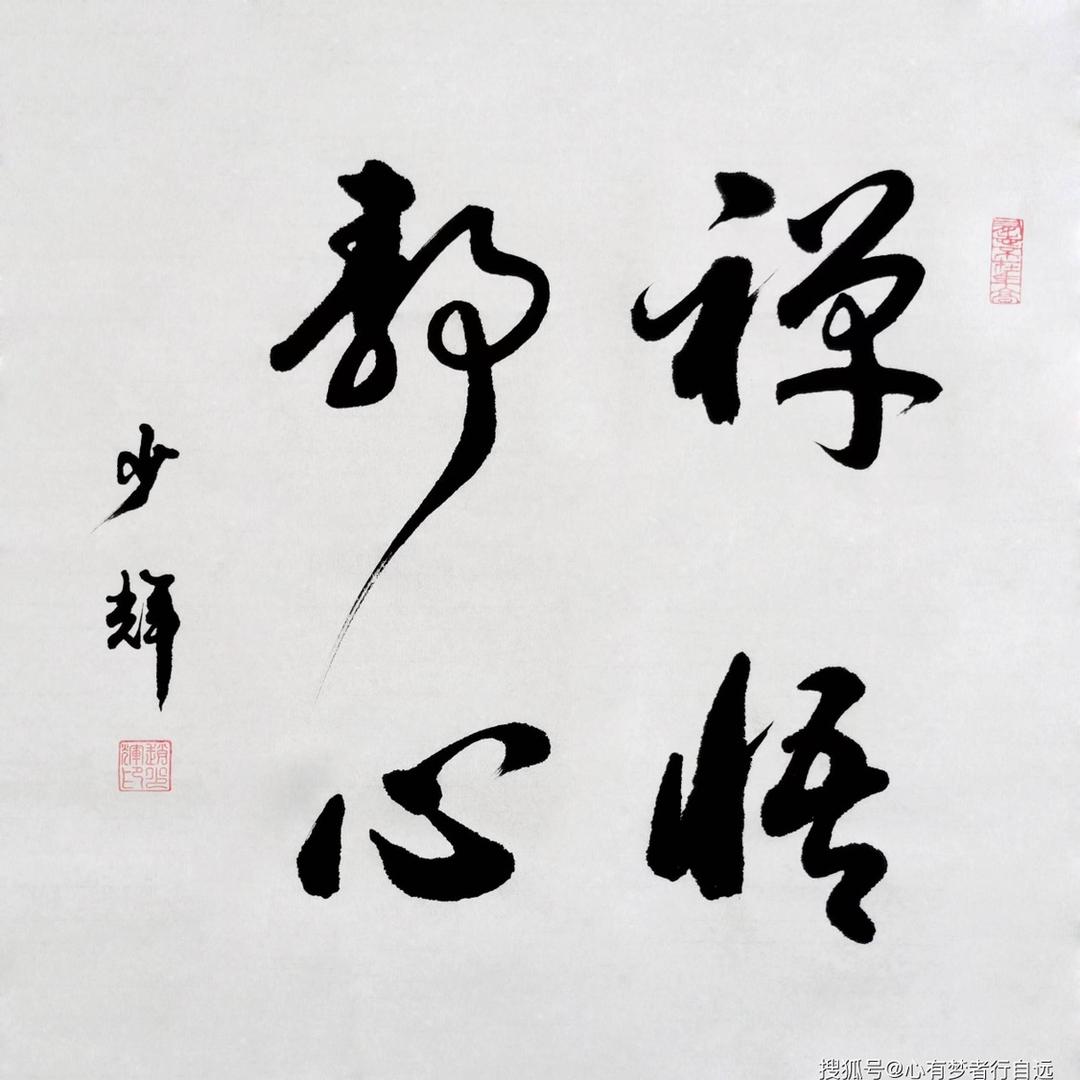 禅悟
静心
少辉
趙少輝印
搜狐号@心有梦者行自远